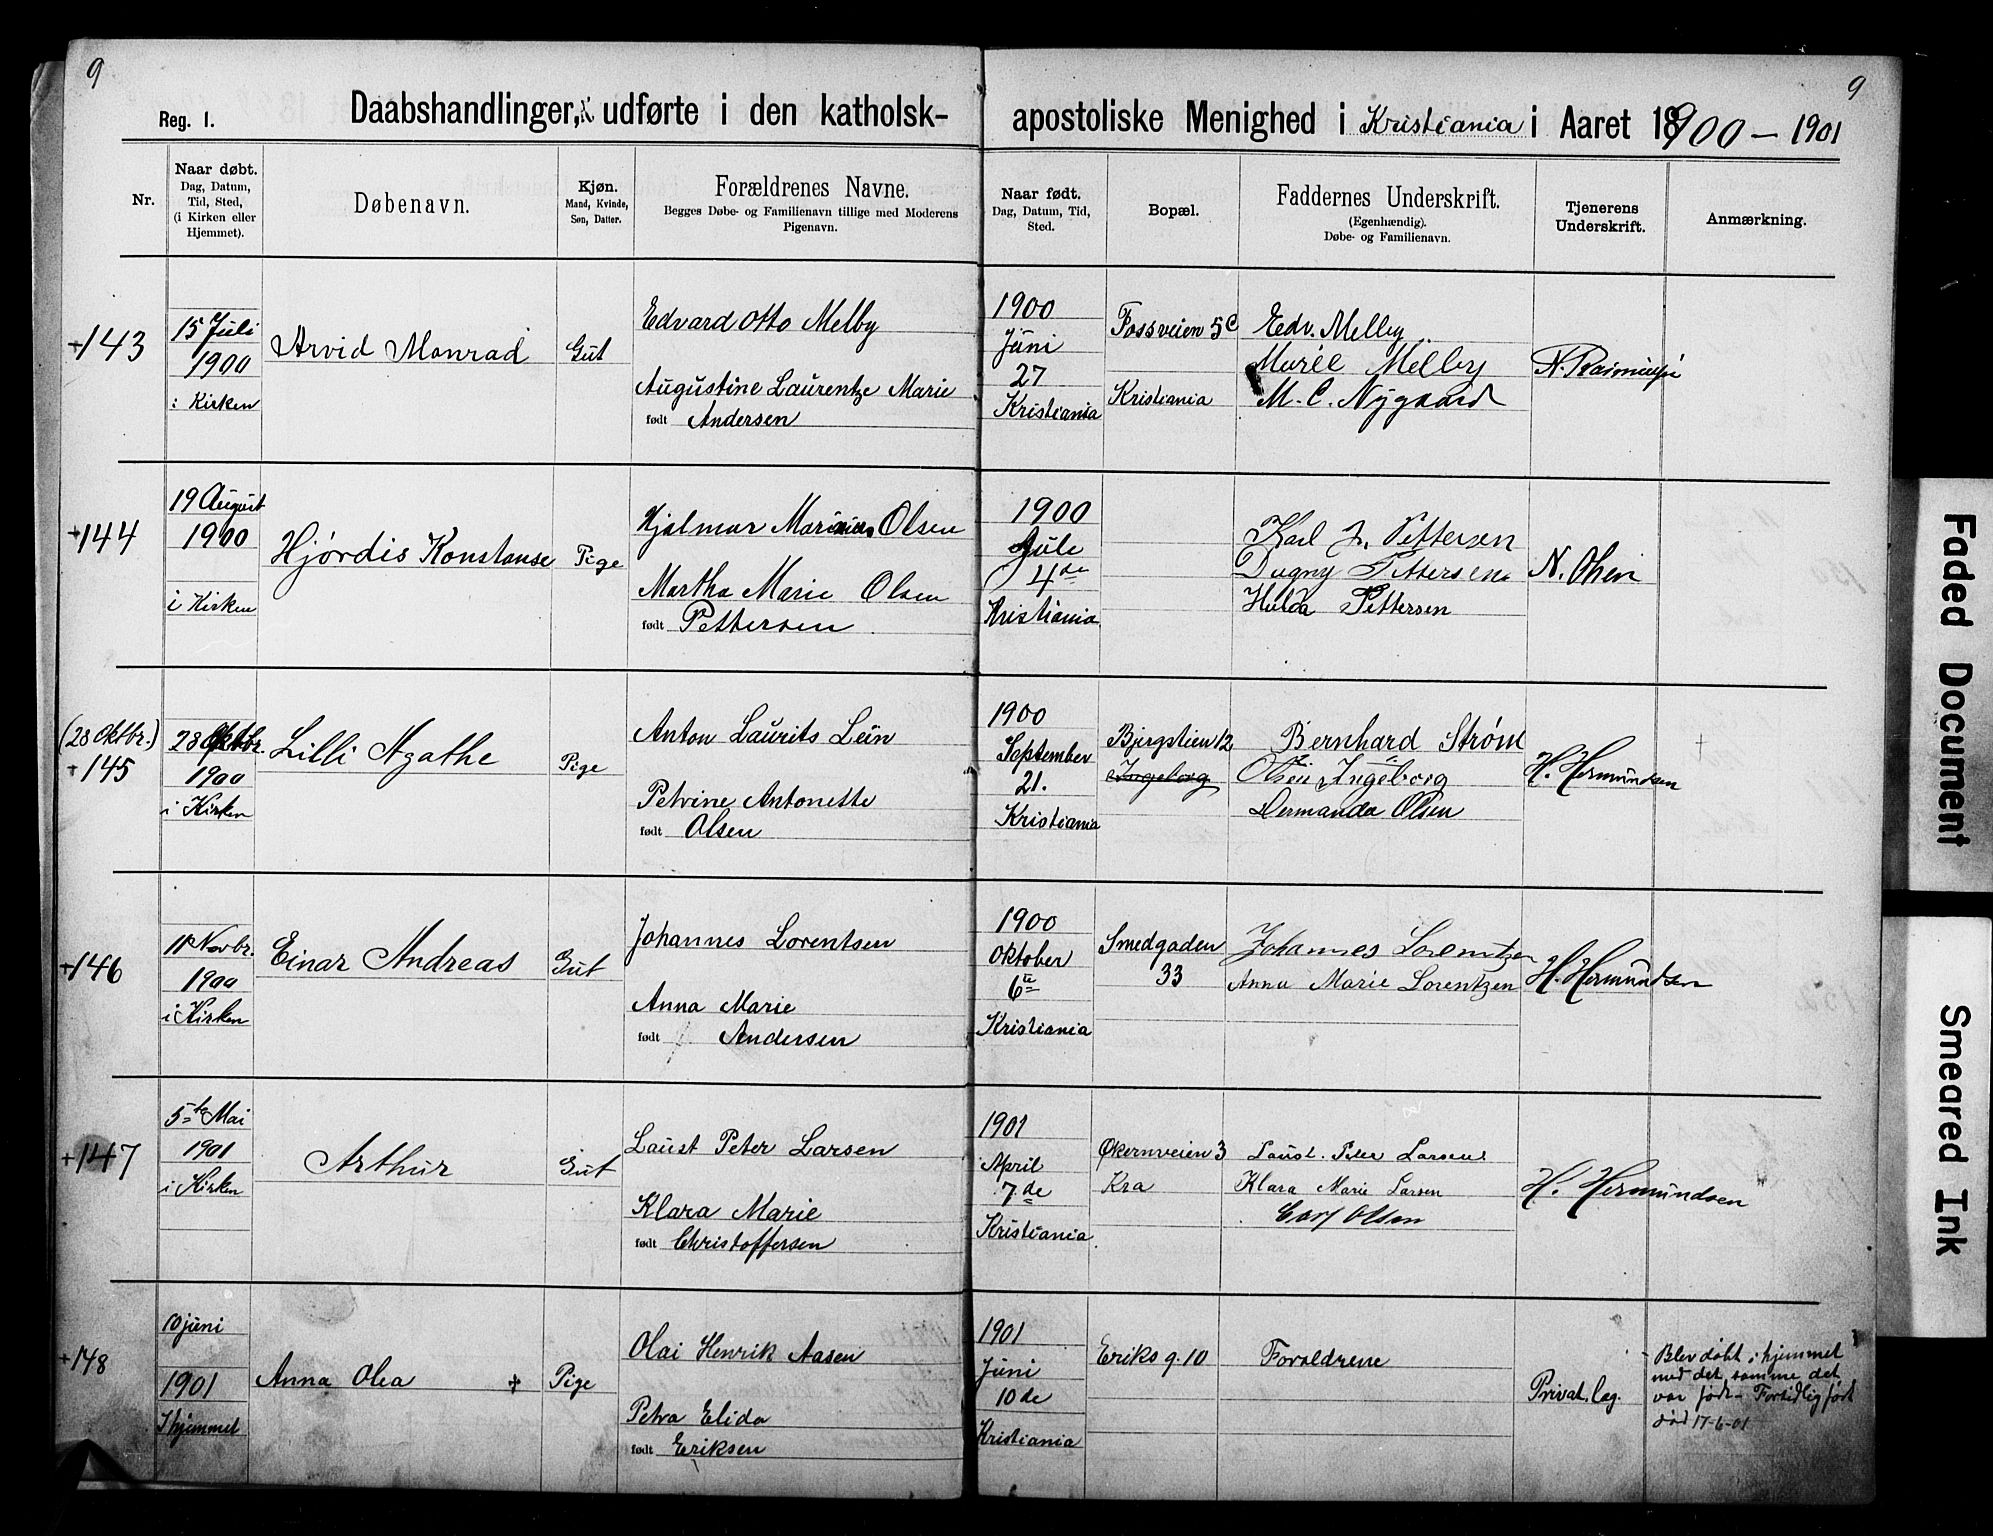 9
9
Reg. 1.
Daabshandlinger, udførte i den katholsk-
apostoliske Menighed i Kristiania i Aaret 1900 - 1901
Nr.
Naar døbt.
Dag, Datum,
Tid, Sted,
(i Kirken eller
Hjemmet).
Døbenavn.
Kjøn.
Mand, Kvinde,
Søn, Datter.
Forældrenes Navne.
Begges Døbe- og Familienavn tillige med Moderens
Pigenavn.
Naar født.
Dag, Datum, Tid,
Sted.
Bopæl.
Faddernes Underskrift.
(Egenhændig).
Døbe- og Familienavn.
Tjenerens
Underskrift.
Anmærkning.
+143
15 Juli
1900
i Kirken
Arvid Monrad
Gut
Edvard Otto Melby
Augustine Laurentze Marie
født Andersen
1900
Juni
27
Kristiania
Fossveien 5c
Kristiania
Edv. Melby
Marie Melby
M. C. Nygaard
+144
19 August
1900
i Kirken
Hjørdis Konstanse
Pige
Hjalmar Marinius Olsen
Martha Marie Olsen
født Pettersen
1900
Jule
4de
Kristiania
Karl J. Pettersen
Dagny Pettersen
Hulda Pettersen
N. Olsen
(28 Oktbr.)
+145
28 Oktbr.
1900
i Kirken
Lilli Agathe
Pige
Anton Laurits Lein
Petrine Antonette
født Olsen
1900
September
21.
Kristiania
Bjergstien 12
Ingeborg
Bernhard Strøm
Olsen Ingeborg
Dermanda Olsen
H. Hermundsen
+146
11 Novbr.
1900
i Kirken
Einar Andreas
Gut
Johannes Lorentsen
Anna Marie
født Andersen
1900
Oktober
6te
Kristiania
Smedgaden
33
Johannes Lorentzen
Anna Marie Lorentzen
H. Hermundsen
+147
5te Mai
1901
i Kirken
Arthur
Gut
Laust Peter Larsen
Klara Marie
født Christoffersen
1901
April
7de
Kristiania
Økernveien 3
Kra
Laust Peter Larsen
Klara Marie Larsen
Carl Olsen
H. Hermundsen
+148
10 juni
1901
I hjemmet
Anna Olea +
Pige
Olai Henrik Aasen
Petra Elida
født Eriksen
1901
Juni
10 de
Kristiania
Eriks g. 10
Foraldrene
Privat. læg.
Blev døbt i hjemmet
med det samme det
var født - Fortidlig født
død 17-6-01
Faded Document
Smeared Ink